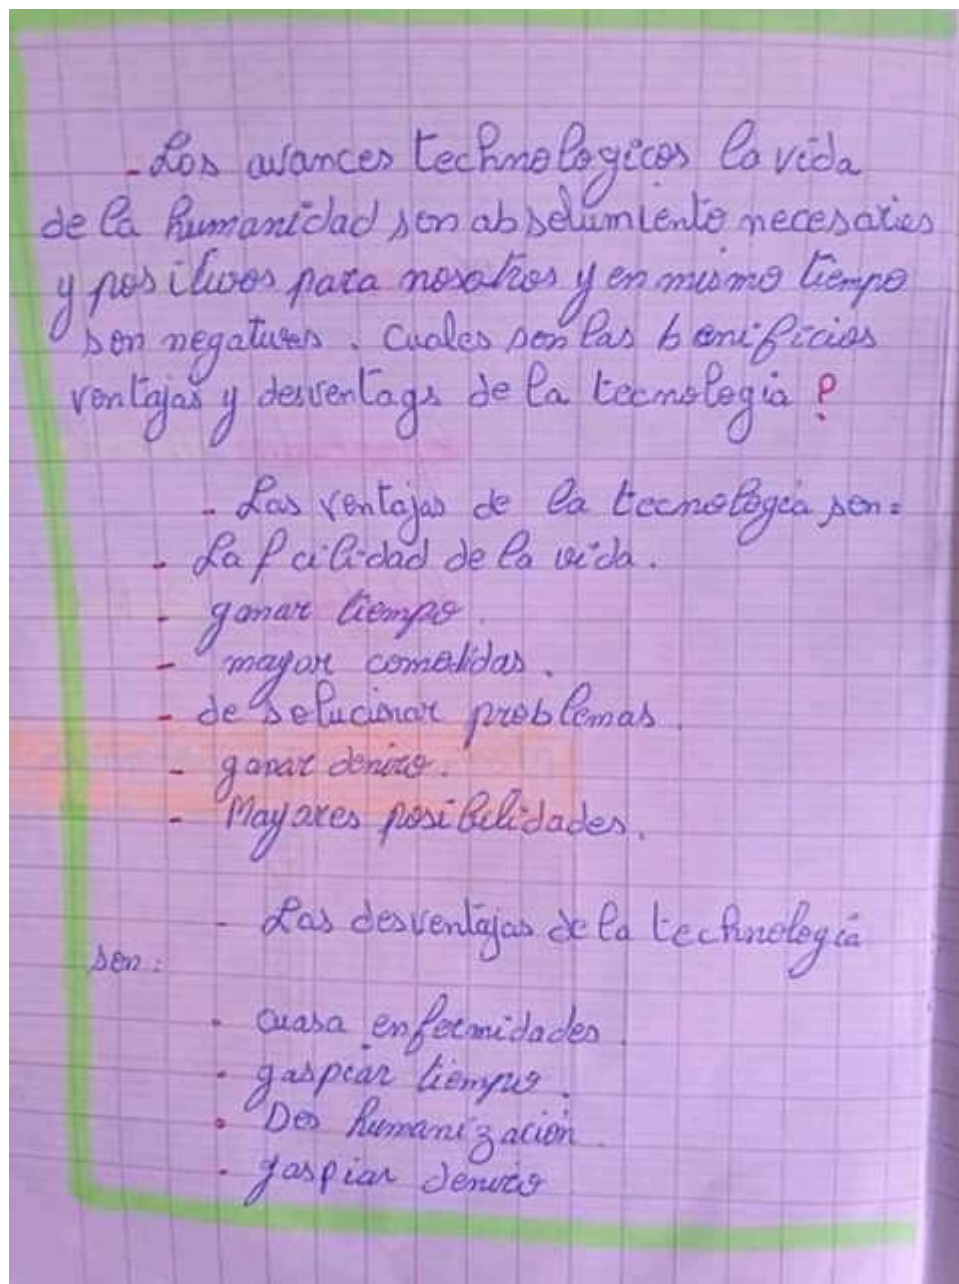 - Los avances technologicos la vida
de la humanidad son absolumiento necesaries
y positivos para nosotros y en mismo tiempo
son negatives. Cuales son las benificios
ventajas y desventags de la tecnologia ?
- Las ventajas de la tecnologia son:
- La facilidad de la vida.
- ganar tiempo.
- mayor comodidas.
- de solucionar problemas.
- ganar deniro.
- Mayores posibilidades.
- Las desventajas de la technologia
son:
- cuasa enfermidades.
- gaspiar tiempo.
• Des humanización.
- gaspiar deniro